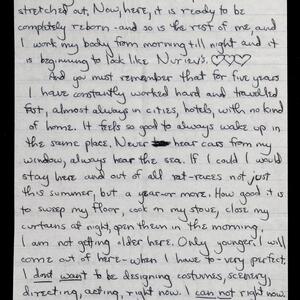 stretched out. Now, here, it is ready to be
completely reborn - and so is the rest of me, and
I work my body from morning till night and it
is beginning to look like Nuriev's. ♡♡♡
And you must remember that for five years
I have constantly worked hard and travelled
fast, almost always in cities, hotels, with no kind
of home. It feels so good to always wake up in
the same place. Never hear cars from my
window, always hear the sea. If I could I would
stay here and out of all rat-races not just
this summer, but a year or more. How good it is
to sweep my floor, cook on my stove, close my
curtains at night, open them in the morning,
I am not getting older here. Only younger. I will
come out of here - when I have to - very perfect.
I dont want to be designing costumes, scenery,
directing, acting, right now. I can not right now.